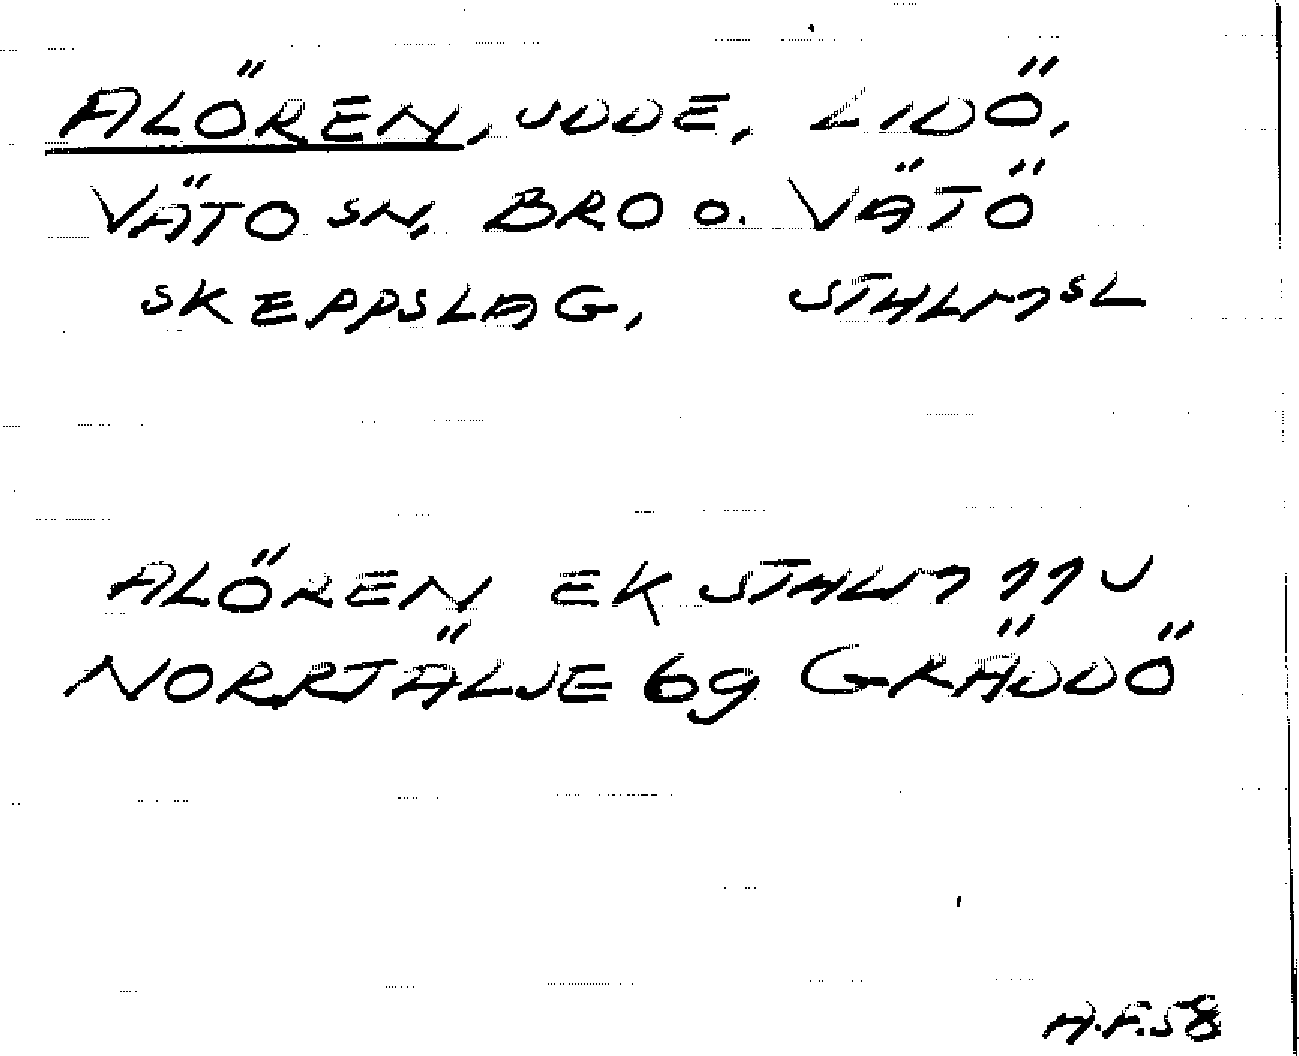 ALÖREN, UDDE, LIDÖ,
VÄTO SN, BRO O. VÄTÖ
SKEPPSLAG, STHLMSL
ALÖREN EK STHLM
NORRTÄLJE 69 GRÄDDÖ
A.F.58